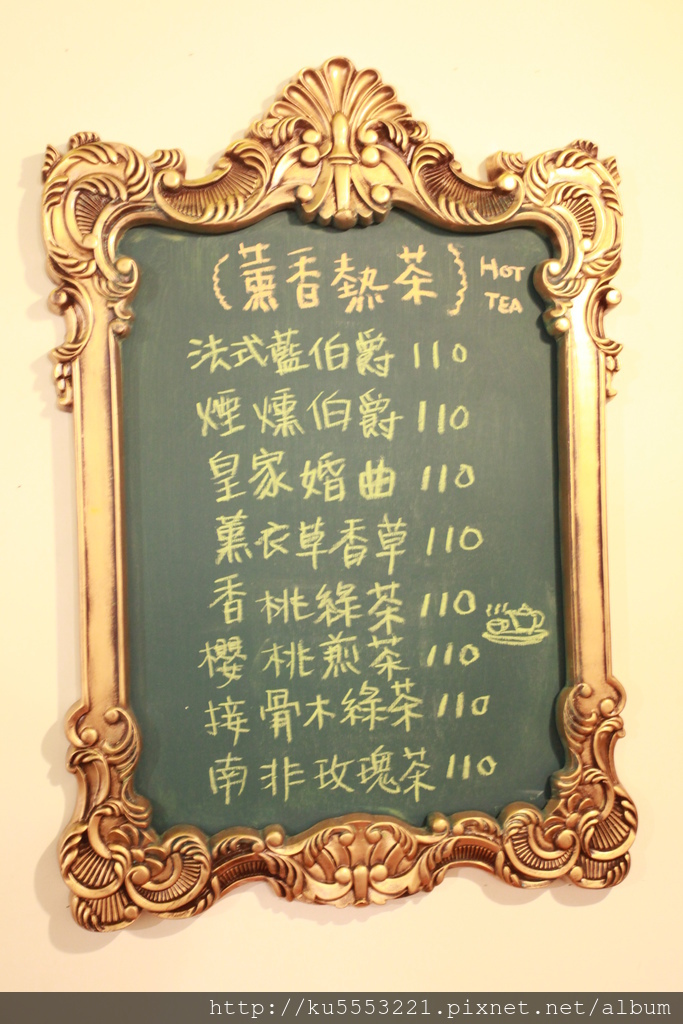 {薰香熱茶} HOT TEA
法式藍伯爵 110
煙燻伯爵 110
皇家婚曲 110
薰衣草香草 110
香桃綠茶 110
櫻桃煎茶 110
接骨木綠茶 110
南非玫瑰茶 110
http://ku5553221.pixnet.net/album